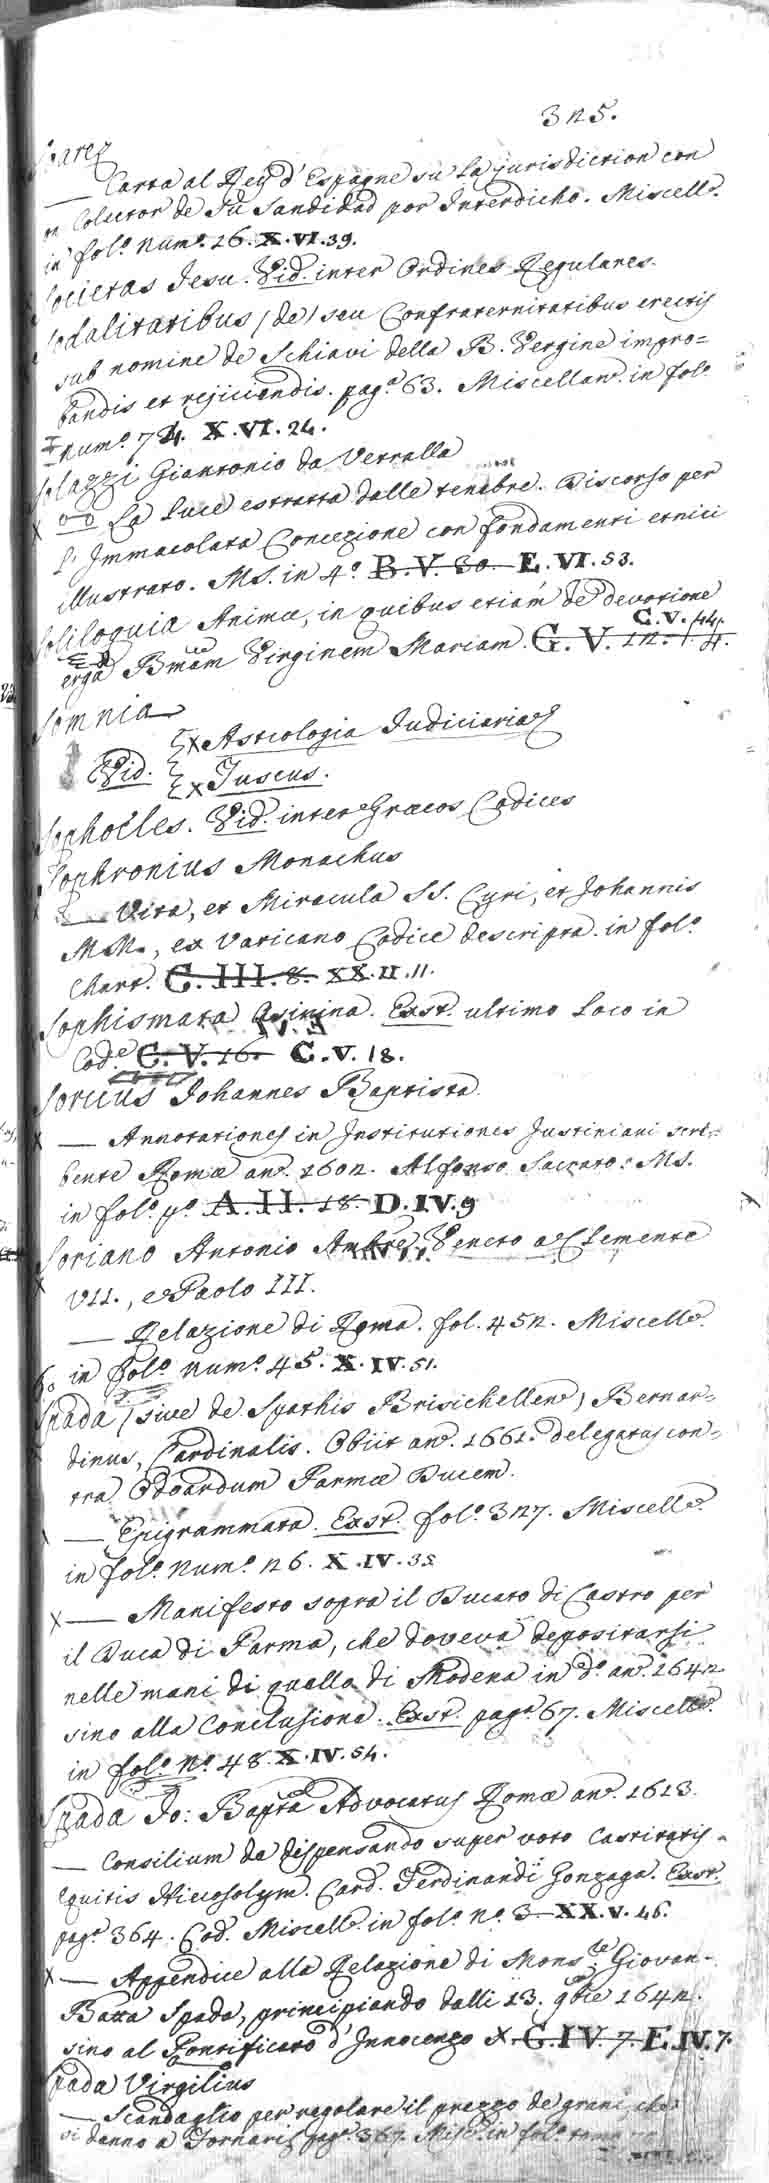 325.
Suarez
— Carta al Rey d'Espagne su la jurisdiction con
un Colector de Su Sandidad por Interdicho. Miscell.
in fol.º num.º 26. X.VI.39.
Societas Jesu. Vid. inter Ordines Regulares.
Sodalitatibus (de) seu Confraternitatibus erectis
sub nomine de Schiavi della B. Vergine impro=
bandis et rejiciendis. pag.ª 63. Miscellan. in fol.º
num.º 74. X.VI.24.
Solazzi Giantonio da Vetralla
X — La Luce estratta dalle tenebre. Discorso per
l'Immacolata Concezione con fondamenti etnici
illustrato. MS. in 4.º B.V.30. E.VI.53.
Soliloquia Animæ, in quibus etiam de devotione
C.V.44.
erga Bmam Virginem Mariam. G.V. 12.
Somnia
Vid. X Astrologia Judiciaria
X Tuscus.
Sophocles. Vid. inter Græcos Codices
Sophronius Monachus
— Vita, et Miracula SS. Cyri, et Johannis
M.M., ex Vaticano Codice descripta. in fol.º
Chart. C.III.8. XX.II.11.
Sophismata Asinina. Exst. ultimo loco in
Cod.e C.V.16. C.V.18.
Soricius Johannes Baptista
X — Annotationes in Institutiones Justiniani scri-
bente Romæ an. 1602. Alfonso Saccato. MS.
in fol.º A.II.18. D.IV.9
Soriano Antonio Amb.re Veneto a Clemente
X VII., e Paolo III.
— Relazione di Roma. fol. 452. Miscell.
in fol.º num.º 45. X.IV.51.
Spada (sive de Spathis Brisichellen) Bernar=
dinus, Cardinalis. Obiit an. 1661. delegatus con=
tra Odoardum Parmæ Ducem.
— Epigrammata. Exst. fol.º 327. Miscell.
in fol.º num.º 26. X.IV.35
X — Manifesto sopra il Ducato di Castro per
il Duca di Parma, che doveva depositarsi
nelle mani di quello di Modena in d.º an. 1642
sino alla Conclusione. Exst. pag.ª 67. Miscell.
in fol.º n.º 48. X.IV.54.
Spada Jo: Bapta Advocatus Romæ an. 1613.
— Consilium de dispensando super voto Castitatis
Equitis Hierosolym. Card. Ferdinandi Gonzaga. Exst.
pag.ª 364. Cod. Miscell. in fol.º n.º 3. XX.V.46.
X — Appendice alla Relazione di Mons.re Giovan-
Batta Spada, principiando dalli 13. 9bre 1642.
sino al Pontificato d'Innocenzo X. G.IV.7. E.IV.7.
Spada Virgilius
— Scandaglio per regolare il prezzo de grani, che
si danno a Fornari. pag.ª 367. Misc. in fol.º